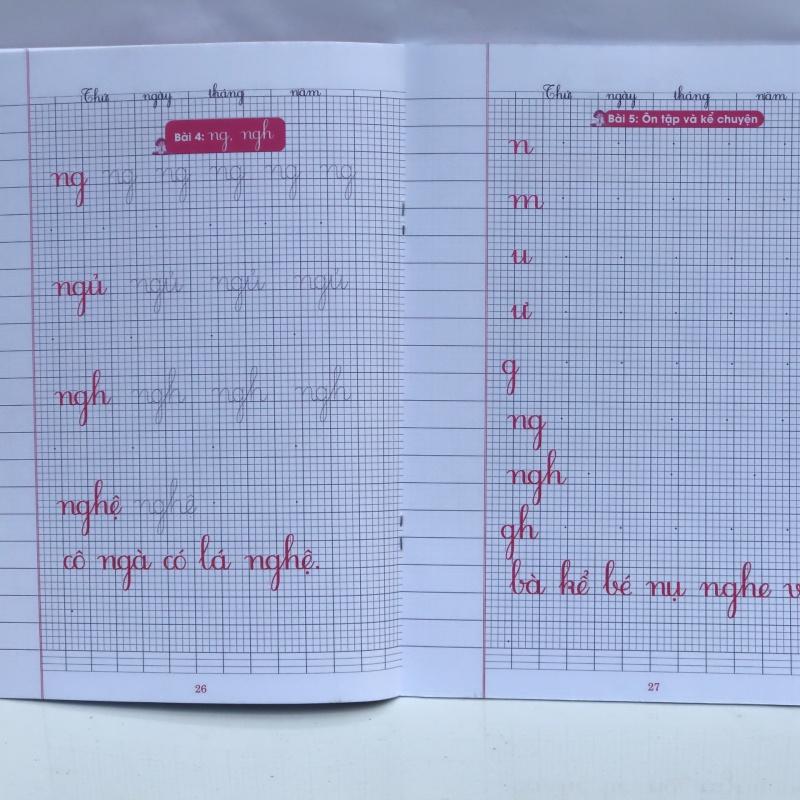 Thứ ngày tháng năm
Bài 4: ng, ngh
ng ng ng ng ng ng
ngủ ngủ ngủ ngủ
ngh ngh ngh ngh
nghệ nghệ
cô ngà có lá nghệ.
26
Thứ ngày tháng năm
Bài 5: Ôn tập và kể chuyện
n
m
u
ư
g
ng
ngh
gh
bà kể bé nụ nghe
27